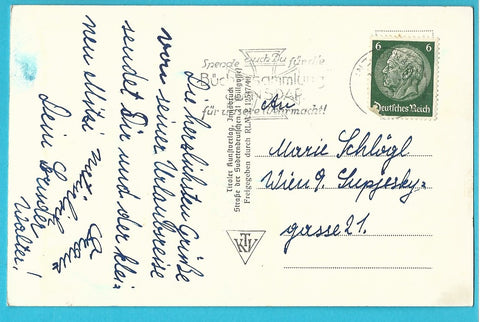 Die herzlichsten Grüße
von seiner Urlaubsreise
sendet Dir und der klei-
nen Mitzi
Dein Bruder
Walter!
Tiroler Kunstverlag, Innsbruck
Straße der Sudetendeutschen 21
Freigegeben durch RLM
KTV
Spende auch Du für die
Büchersammlung
der NSDAP
für unsere Wehrmacht!
6 6
Deutsches Reich
An
Marie Schlögl
Wien 9. Lupjesky-
gasse 21.